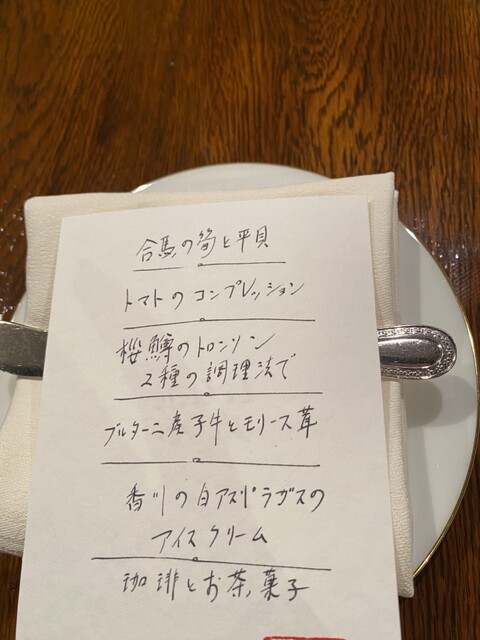 合馬の筍と平貝
トマトのコンプレッション
桜鱒のトロンソン
2種の調理法で
ブルターニュ産子牛とモリーユ茸
香川の白アスパラガスの
アイスクリーム
珈琲とお茶菓子